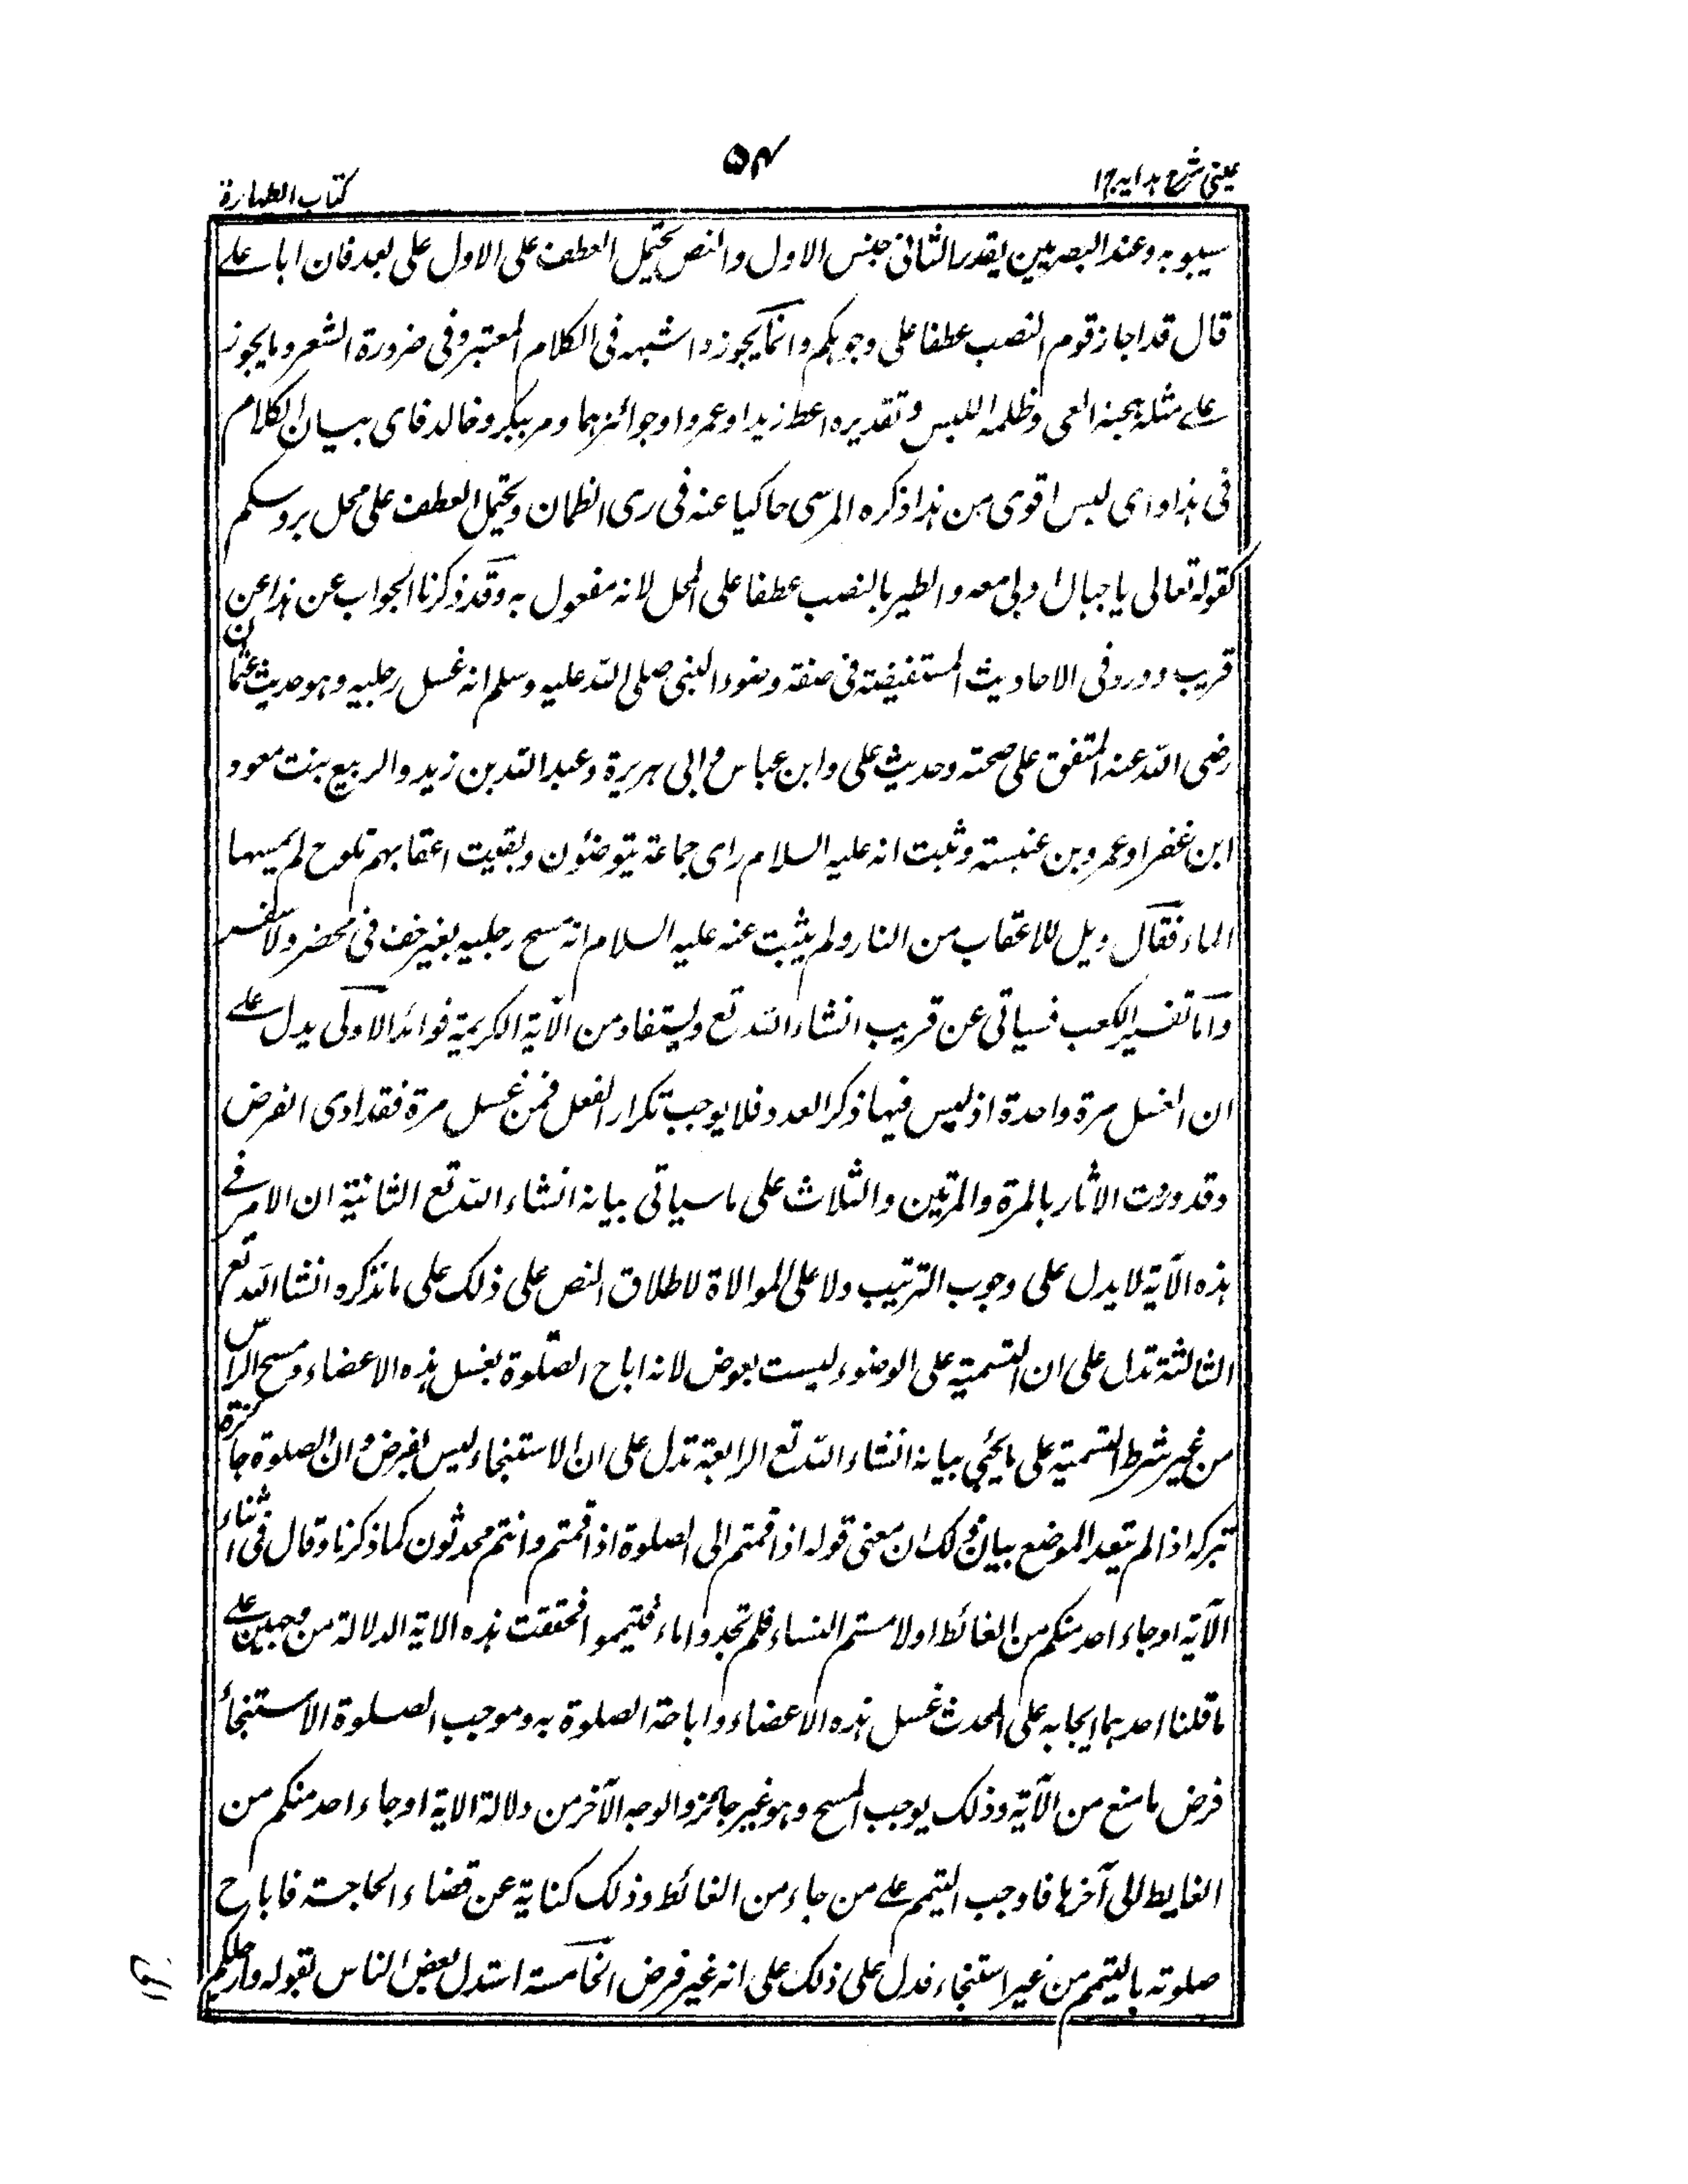 عینی شرح ہدایہ ج۱
۵۴
کتاب الطہارۃ
سیبویہ وعند البصریین یقدر الثانی جنس الاول والنص یحتمل العطف علی الاول علی بعد فان ابا علے
قال قد اجاز قوم النصب عطفا علی وجوہکم وانما یجوز واشبہہ فی الکلام المعتبر وفی ضرورۃ الشعر وما یجوز
علے مثلہ ہجنۃ العی وظلمۃ اللبس وتقدیرہ اعط زیدا وعمروا وجوائزہما ومر ببکر وخالد فای بیان الکلام
فی ہذا وای لبس اقوی من ہذا ذکرہ المرسی حاکیا عنہ فی ری الظمان ویحتمل العطف علی محل بروسکم
کقولہ تعالی یا جبال اوبی معہ والطیر بالنصب عطفا علی المحل لانہ مفعول بہ وقد ذکرنا الجواب عن ہذا عن
قریب وورد فی الاحادیث المستفیضۃ فی صفۃ وضوء النبی صلی اللہ علیہ وسلم انہ غسل رجلیہ وہو حدیث عثمان
رضی اللہ عنہ المتفق علی صحتہ وحدیث علی وابن عباس وابی ہریرۃ وعبد اللہ بن زید والربیع بنت معود
ابن غفرا وعمرو بن عنبسۃ وثبت انہ علیہ السلام رای جماعۃ یتوضئون وبقیت اعقابہم تلوح لم یمسہا
الماء فقال ویل للاعقاب من النار ولم یثبت عنہ علیہ السلام انہ مسح رجلیہ بغیر خف فی محضر ولا سفر
واما تفسیر الکعب فسیاتی عن قریب انشاء اللہ تع ویستفاد من الآیۃ الکریمۃ فوائد الاولی یدل علے
ان الغسل مرۃ واحدۃ اذ لیس فیہا ذکر العدد فلا یوجب تکرار الفعل فمن غسل مرۃ فقد ادی الفرض
وقد وردت الاثار بالمرۃ والمرتین والثلاث علی ما سیاتی بیانہ انشاء اللہ تع الثانیۃ ان الامر فے
ہذہ الآیۃ لا یدل علی وجوب الترتیب ولا علی الموالاۃ لاطلاق النص علی ذلک علی ما نذکرہ انشا اللہ تع
الثالثۃ تدل علی ان التسمیۃ علی الوضوء لیست بعوض لانہ اباح الصلوۃ بغسل ہذہ الاعضاء ومسح الراس
من غیر شرط التسمیۃ علی ما یجیٔ بیانہ انشاء اللہ تع الرابعۃ تدل علی ان الاستنجاء لیس بفرض وان الصلوۃ جائزۃ
بترکہ اذا لم یتعد الموضع بیان ذلک ان معنی قولہ اذا قمتم الی الصلوۃ اذا قمتم وانتم محدثون کما ذکرنا وقال فی اثناء
الآیۃ او جاء احد منکم من الغائط او لامستم النساء فلم تجدوا ماء فتیمموا فحققت ہذہ الایۃ الدلالۃ من وجہین علے
ما قلنا احدہما ایجابہ علی المحدث غسل ہذہ الاعضاء واباحۃ الصلوۃ بہ وموجب الصلوۃ الاستنجا
فرض مانع من الآیۃ وذلک یوجب المسح وہو غیر جائز والوجہ الآخر من دلالۃ الایۃ او جاء احد منکم من
الغایط الی آخرہا فاوجب التیمم علے من جاء من الغائط وذلک کنایۃ عن قضاء الحاجۃ فاباح
صلوتہ بالتیمم من غیر استنجاء فدل علی ذلک علی انہ غیر فرض الخامسۃ استدل بعض الناس بقولہ وارجلکم